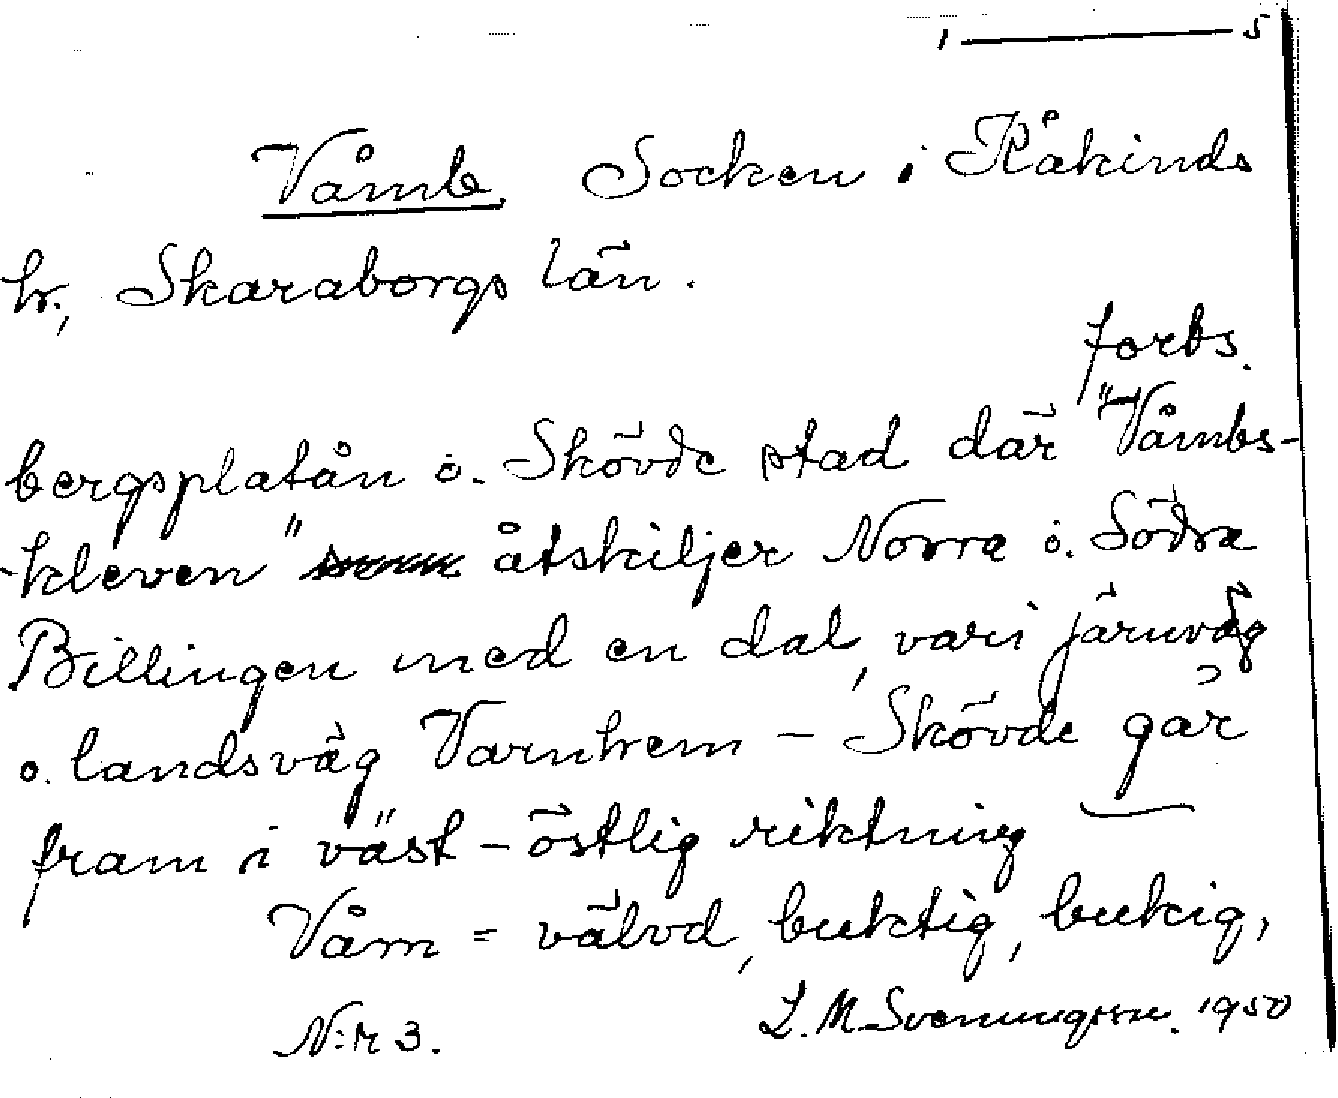 1 — 5
Våmb Socken i Kåkinds
hr., Skaraborgs län.
forts.
bergsplatån o. Skövde stad där "Våmbs-
-kleven" åtskiljer Norra o. Södra
Billingen med en dal, vari järnväg
o. landsväg Varnhem – Skövde går
fram i väst – östlig riktning —
Våm = välvd, buktig, bukig,
N:r 3.
L. M. Svenungsson. 1950